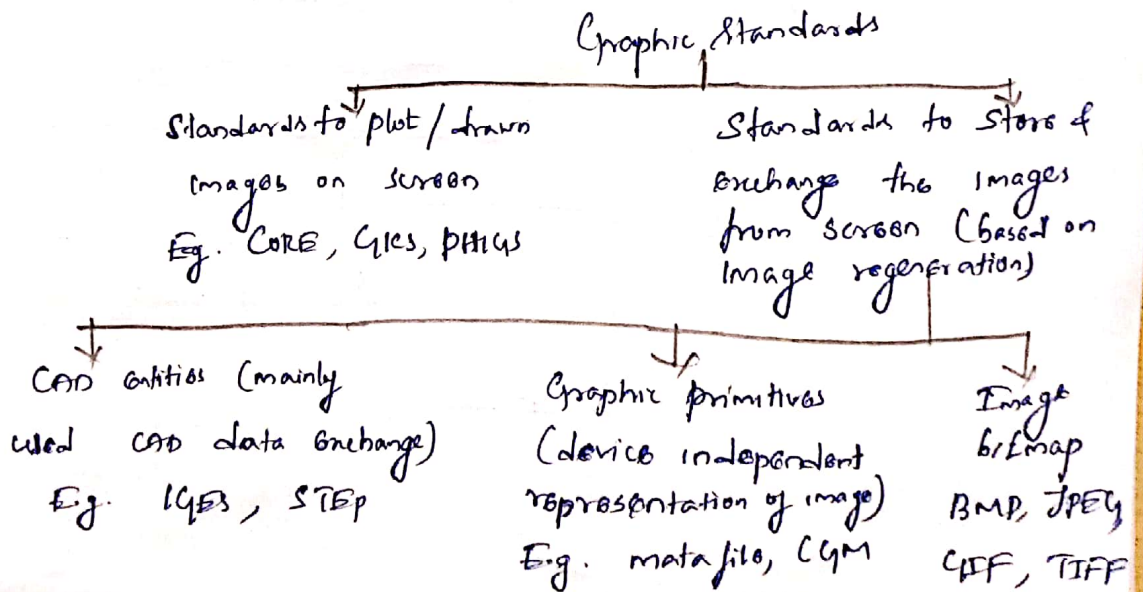 Graphic Standards
Standards to plot / drawn
images on screen
Eg. CORE, GKS, PHIGS
Standards to Store &
exchange the images
from screen (based on
image regeneration)
CAD entities (mainly
used CAD data exchange)
E.g. IGES, STEP
Graphic primitives
(device independent
representation of image)
E.g. meta file, CGM
Image
bitmap
BMP, JPEG,
GIF, TIFF